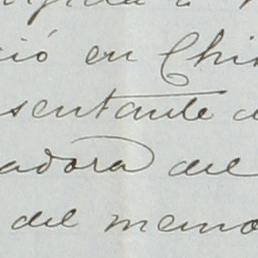 ció en Chi
sentante d
adora del
del memo